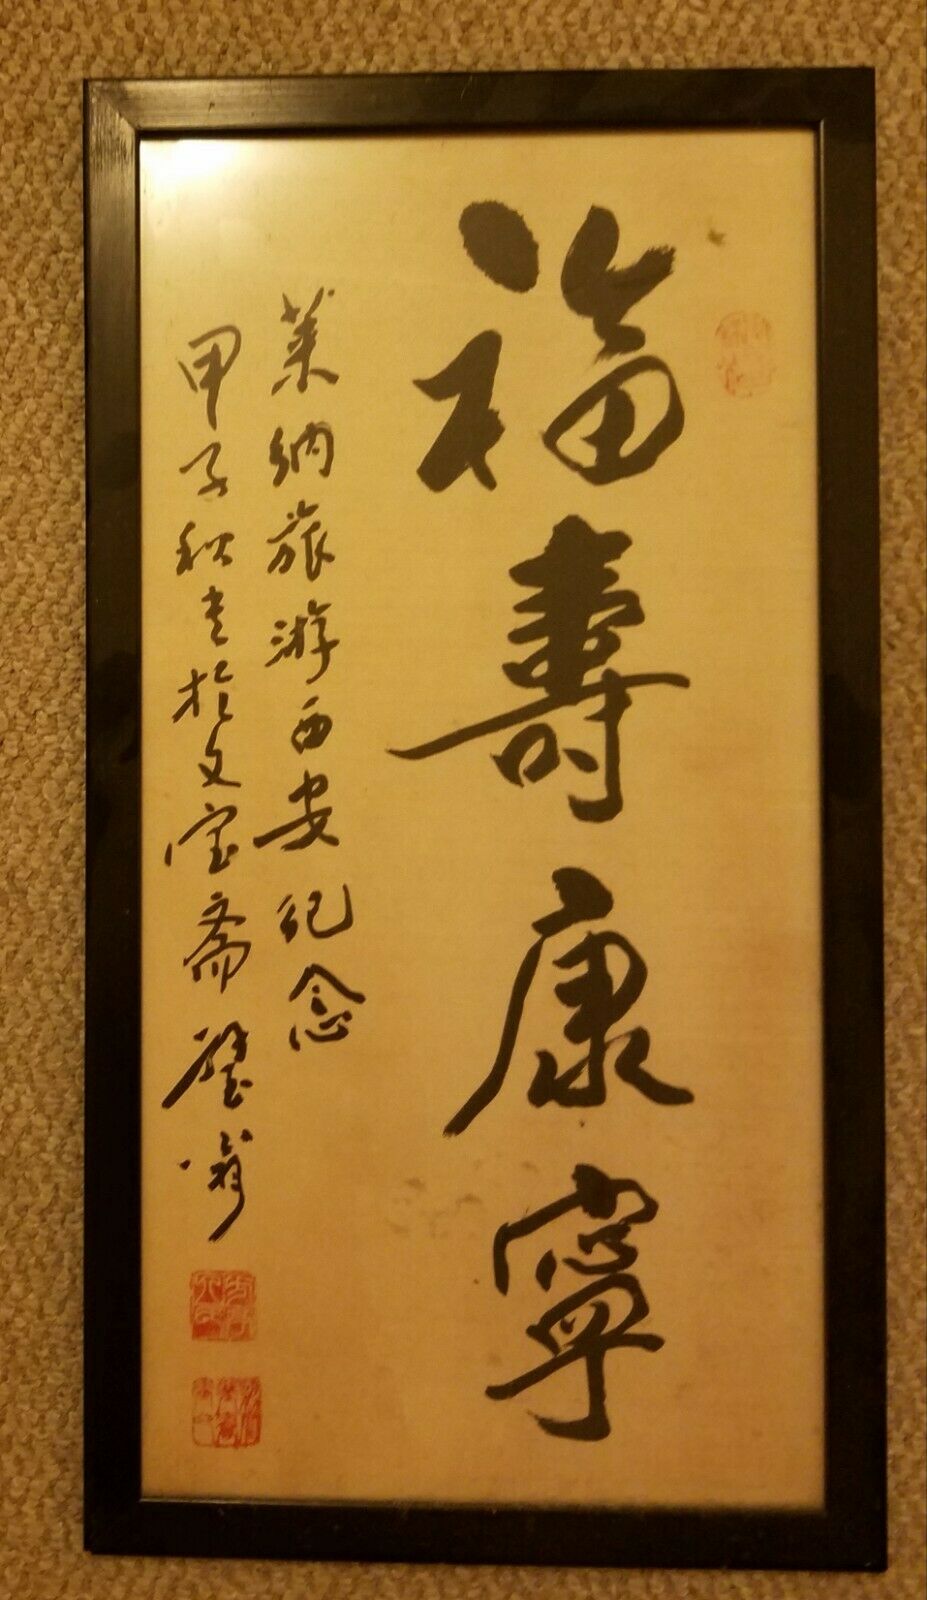 福壽康寧
莱纳旅游西安纪念
甲子秋書於文宝斋 璧翁